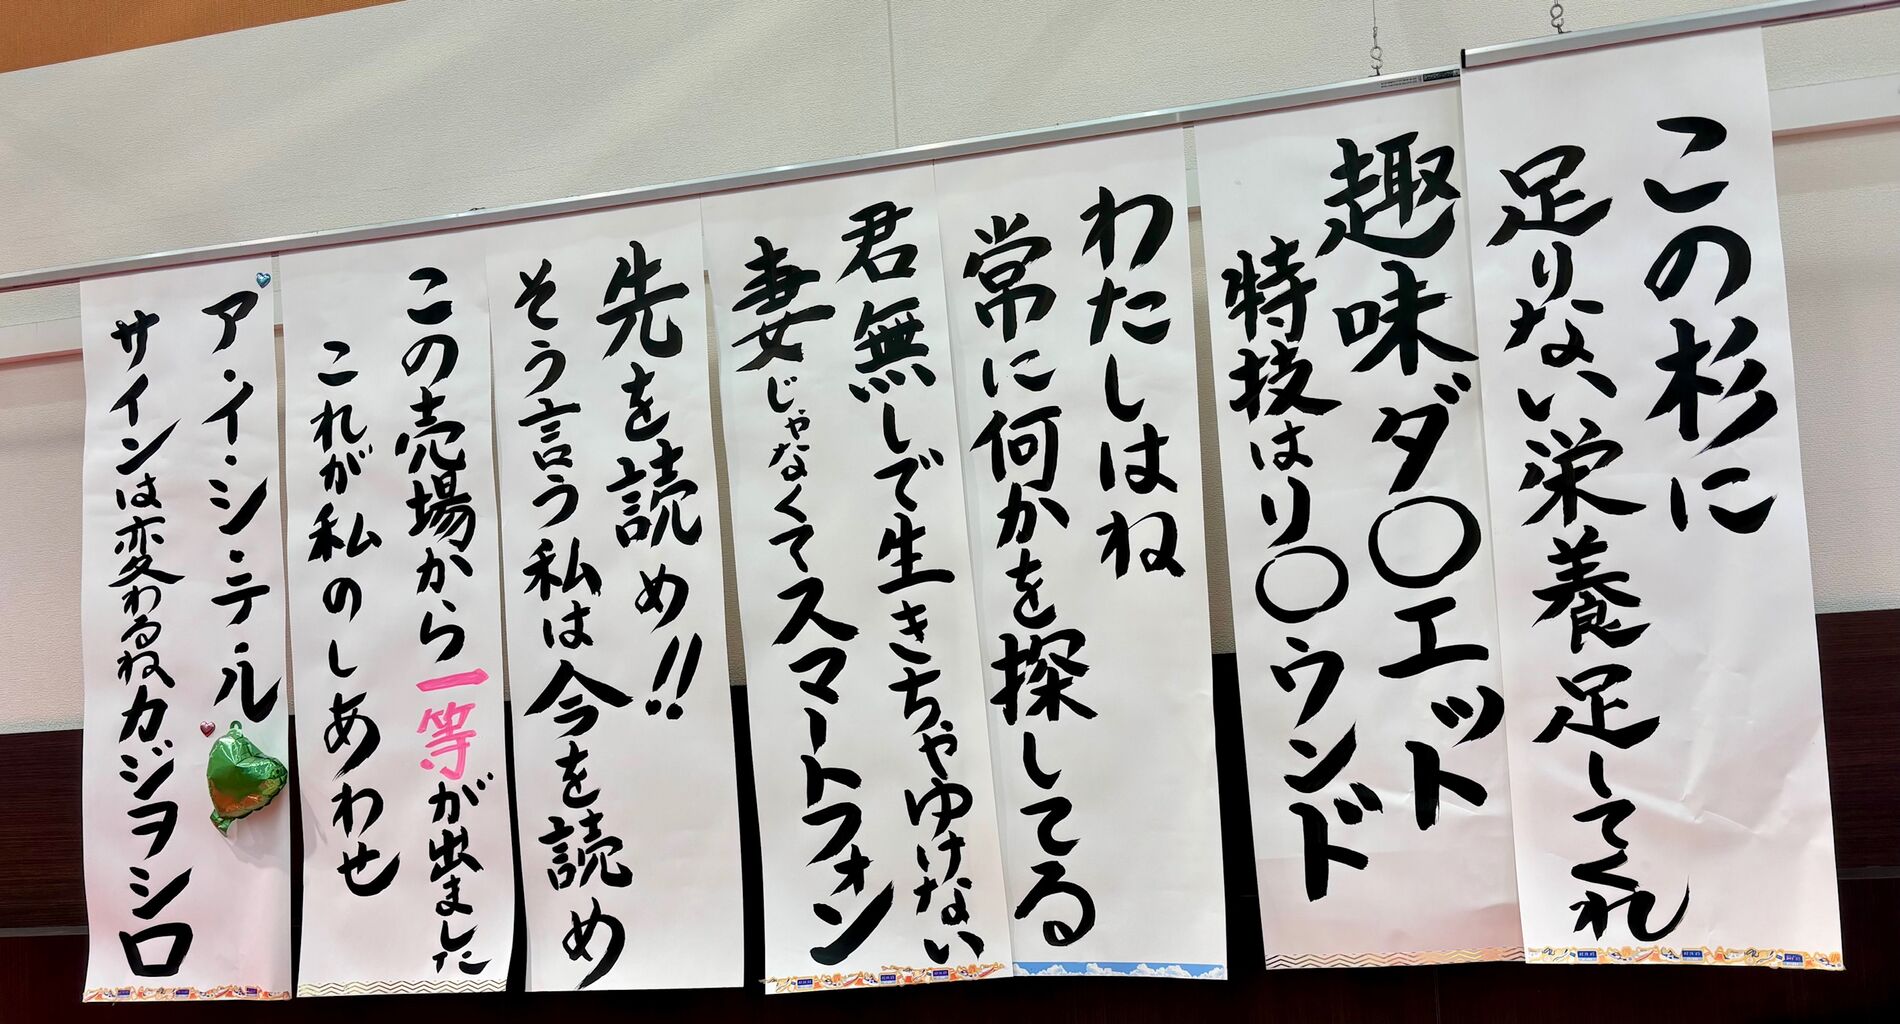 この杉に
足りない栄養足してくれ
趣味ダ〇エット
特技はリ〇ウンド
わたしはね
常に何かを探してる
君無しで生きちゃゆけない
妻じゃなくてスマートフォン
先を読め!!
そう言う私は今を読め
この売場から一等が出ました
これが私のしあわせ
ア・イ・シ・テ・ル
サインは変わるねカジヲシロ